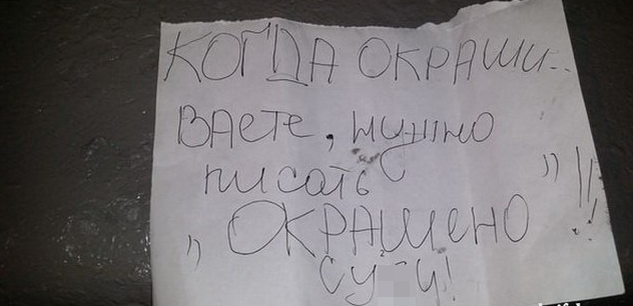 КОГДА ОКРАШИ-
ВАЕТЕ, нужно
писать
„ОКРАШЕНО" !!